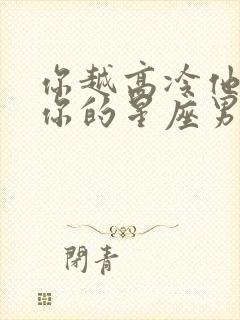 你越高冷他
你的星座男
閉青